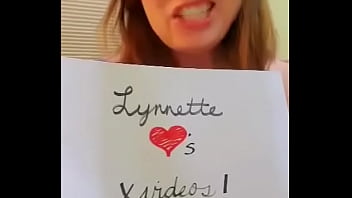 Lynnette
❤'s
Xvideos!